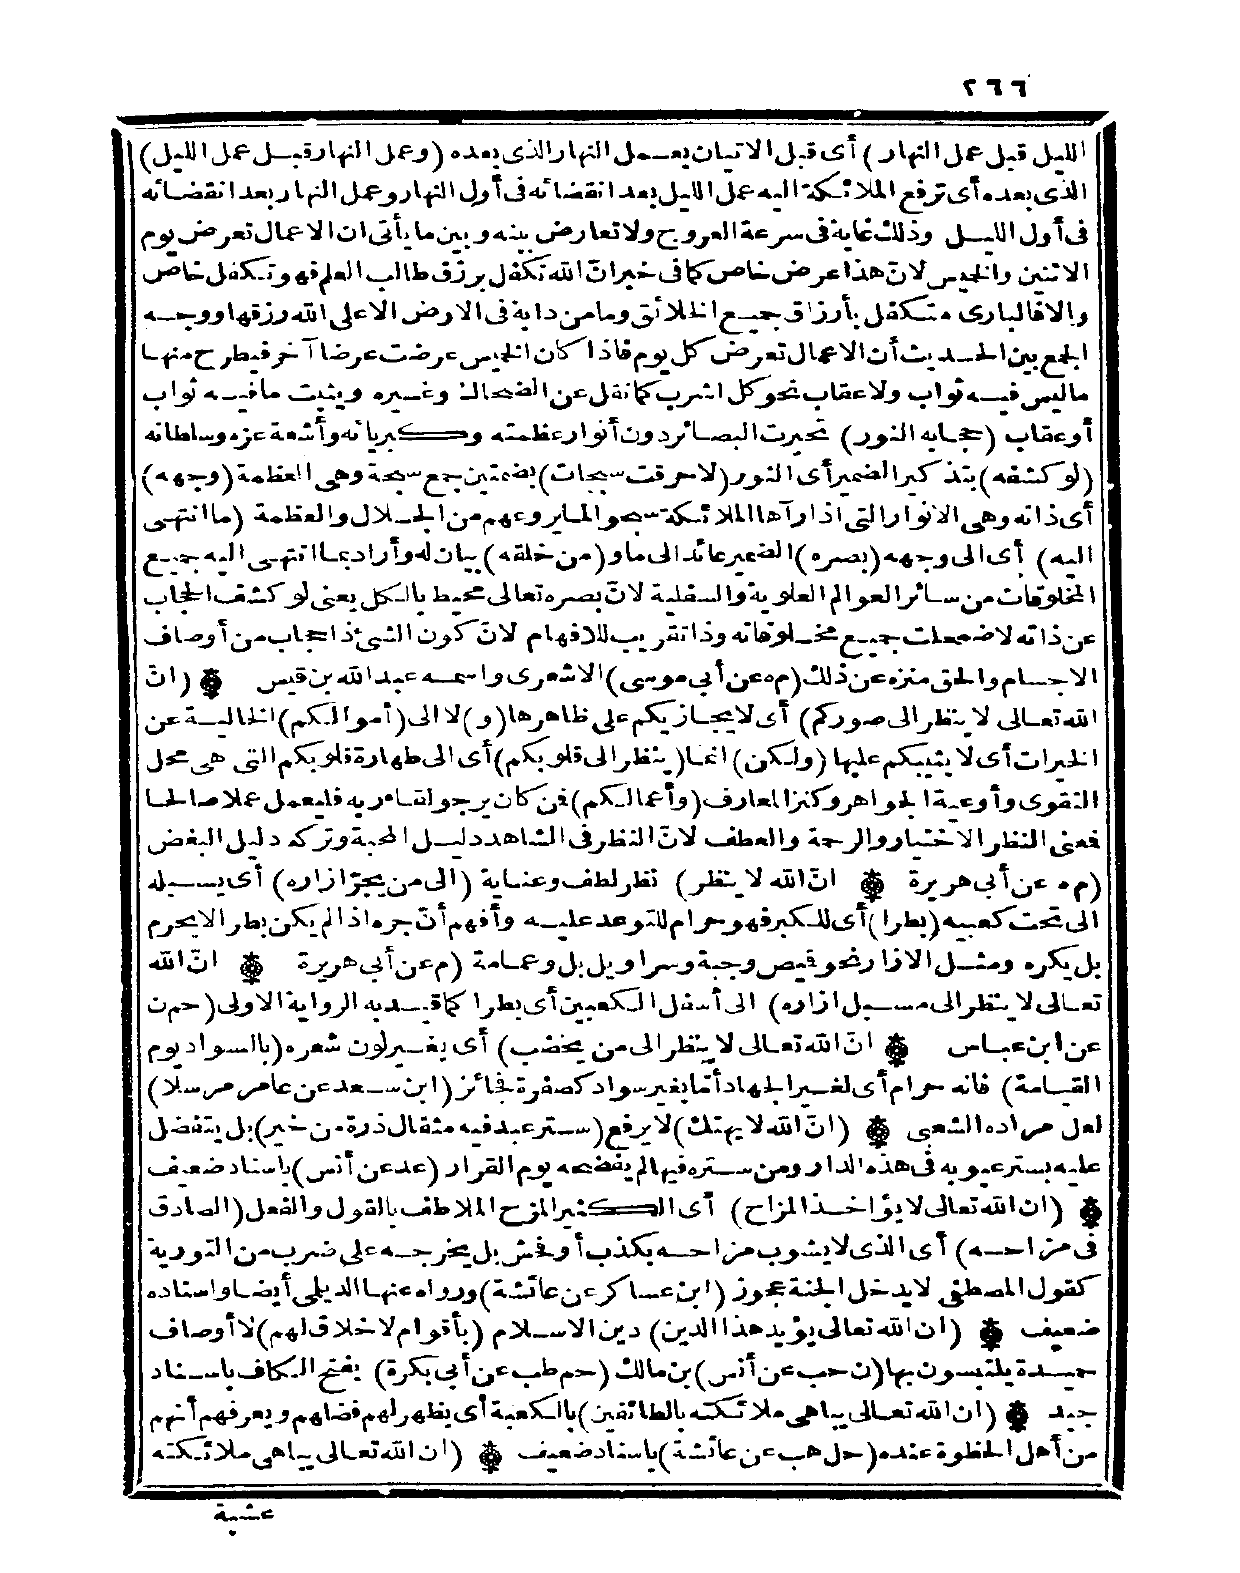 ٢٦٦
الليل قبل عمل النهار) أى قبل الاتيان بعمل النهار الذى بعده (وعمل النهار قبل عمل الليل)
الذى بعده أى ترفع الملائكة اليه عمل الليل بعد انقضائه فى أول النهار وعمل النهار بعد انقضائه
فى أول الليل وذلك غاية فى سرعة العروج ولا تعارض بينه وبين ما يأتى ان الاعمال تعرض يوم
الاثنين والخميس لانّ هذا عرض خاص كما فى خبر انّ الله تكفل برزق طالب العلم فهو تكفل خاص
والا فالبارى متكفل بأرزاق جميع الخلائق وما من دابة فى الارض الا على الله رزقها ووجه
الجمع بين الحديث أن الاعمال تعرض كل يوم فاذا كان الخميس عرضت عرضا آخر فيطرح منها
ما ليس فيه ثواب ولا عقاب نحو كل اشرب كما نقل عن الضحاك وغيره ويثبت ما فيه ثواب
أو عقاب (حجابه النور) تحيرت البصائر دون أنوار عظمته وكبريائه وأشعة عزه وسلطانه
(لو كشفه) بتذكير الضمير أى النور (لاحرقت سبحات) بضمتين جمع سبحة وهى العظمة (وجهه)
أى ذاته وهى الانوار التى اذا رآها الملائكة سبحوا لما يروعهم من الجلال والعظمة (ما انتهى
اليه) أى الى وجهه (بصره) الضمير عائد الى ما و (من خلقه) بيان له وأراد بما انتهى اليه جميع
المخلوقات من سائر العوالم العلوية والسفلية لانّ بصره تعالى محيط بالكل يعنى لو كشف الحجاب
عن ذاته لاضمحلت جميع مخلوقاته وذا تقريب للافهام لانّ كون الشئ ذا حجاب من أوصاف
الاجسام والحق منزه عن ذلك (م ه عن أبى موسى) الاشعرى واسمه عبد الله بن قيس ۞ (انّ
الله تعالى لا ينظر الى صوركم) أى لا يجازيكم على ظاهرها (و) لا الى (أموالكم) الخالية عن
الخيرات أى لا يثيبكم عليها (ولكن) انما (ينظر الى قلوبكم) أى الى طهارة قلوبكم التى هى محل
التقوى وأوعية الجواهر وكنز المعارف (وأعمالكم) فمن كان يرجو لقاء ربه فليعمل عملا صالحا
فمعنى النظر الاختيار والرحمة والعطف لانّ النظر فى الشاهد دليل المحبة وتركه دليل البغض
(م ه عن أبى هريرة ۞ انّ الله لا ينظر) نظر لطف وعناية (الى من يجرّ ازاره) أى يسبله
الى تحت كعبيه (بطرا) أى للكبر فهو حرام للتوعد عليه وأفهم أنّ جره اذا لم يكن بطرا لا يحرم
بل يكره ومثل الازار نحو قميص وجبة وسراويل بل وعمامة (م عن أبى هريرة ۞ انّ الله
تعالى لا ينظر الى مسبل ازاره) الى أسفل الكعبين أى بطرا كما قيد به الرواية الاولى (حم ن
عن ابن عباس ۞ انّ الله تعالى لا ينظر الى من يخضب) أى يغير لون شعره (بالسواد يوم
القيامة) فانه حرام أى لغير الجهاد أمّا بغير سواد كصفرة فجائز (ابن سعد عن عامر مرسلا)
لعل مراده الشعبى ۞ (انّ الله لا يهتك) لا يرفع (ستر عبد فيه مثقال ذرة من خير) بل يتفضل
عليه بستر عيوبه فى هذه الدار ومن ستره فيها لم يفضحه يوم القرار (عد عن أنس) باسناد ضعيف
۞ (ان الله تعالى لا يؤاخذ المزاح) أى الكثير المزح الملاطف بالقول والفعل (الصادق
فى مزاحه) أى الذى لا يشوب مزاحه بكذب أو فحش بل يخرجه على ضرب من التورية
كقول المصطفى لا يدخل الجنة عجوز (ابن عساكر عن عائشة) ورواه عنها الديلمى أيضا واسناده
ضعيف ۞ (ان الله تعالى يؤيد هذا الدين) دين الاسلام (بأقوام لا خلاق لهم) لا أوصاف
حميدة يلتبسون بها (ن حب عن أنس) بن مالك (حم طب عن أبى بكرة) بفتح الكاف باسناد
جيد ۞ (ان الله تعالى يباهى ملائكته بالطائفين) بالكعبة أى يظهر لهم فضلهم ويعرفهم أنهم
من أهل الحظوة عنده (حل هب عن عائشة) باسناد ضعيف ۞ (ان الله تعالى يباهى ملائكته
عشية